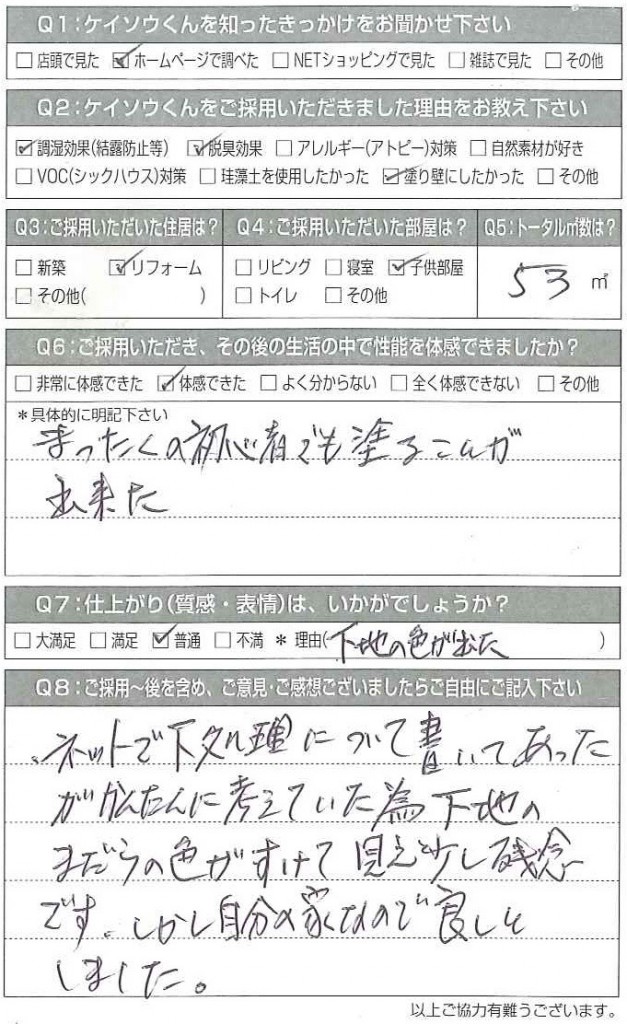 Q1:ケイソウくんを知ったきっかけをお聞かせ下さい
□店頭で見た ☑ホームページで調べた □NETショッピングで見た □雑誌で見た □その他
Q2:ケイソウくんをご採用いただきました理由をお教え下さい
☑調湿効果(結露防止等) ☑脱臭効果 □アレルギー(アトピー)対策 □自然素材が好き
□VOC(シックハウス)対策 □珪藻土を使用したかった ☑塗り壁にしたかった □その他
Q3:ご採用いただいた住居は?
□新築 ☑リフォーム
□その他( )
Q4:ご採用いただいた部屋は?
□リビング □寝室 ☑子供部屋
□トイレ □その他
Q5:トータル㎡数は?
53 ㎡
Q6:ご採用いただき、その後の生活の中で性能を体感できましたか?
□非常に体感できた ☑体感できた □よく分からない □全く体感できない □その他
*具体的に明記下さい
まったくの初心者でも塗ることが
出来た
Q7:仕上がり(質感・表情)は、いかがでしょうか?
□大満足 □満足 ☑普通 □不満 *理由(下地の色が出た )
Q8:ご採用〜後を含め、ご意見・ご感想ございましたらご自由にご記入下さい
、ネットで下処理について書いてあった
がかんたんに考えていた為下地の
まだらの色がすけて見え少し残念
です、しかし自分の家なので良しと
しました。
以上ご協力有難うございます。